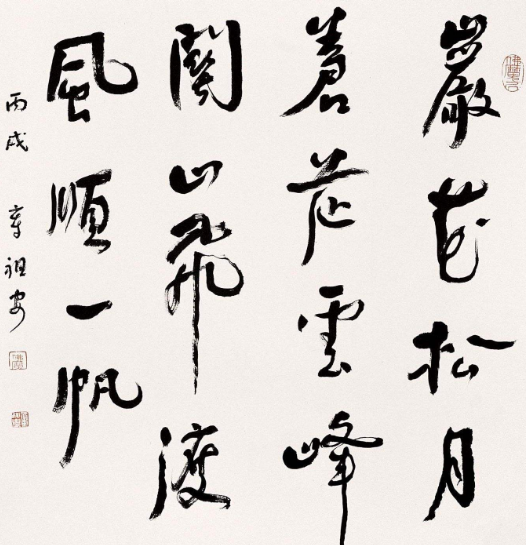 巖花松月
蒼茫雲峰
關山飛渡
風順一帆
丙戌 章祖安